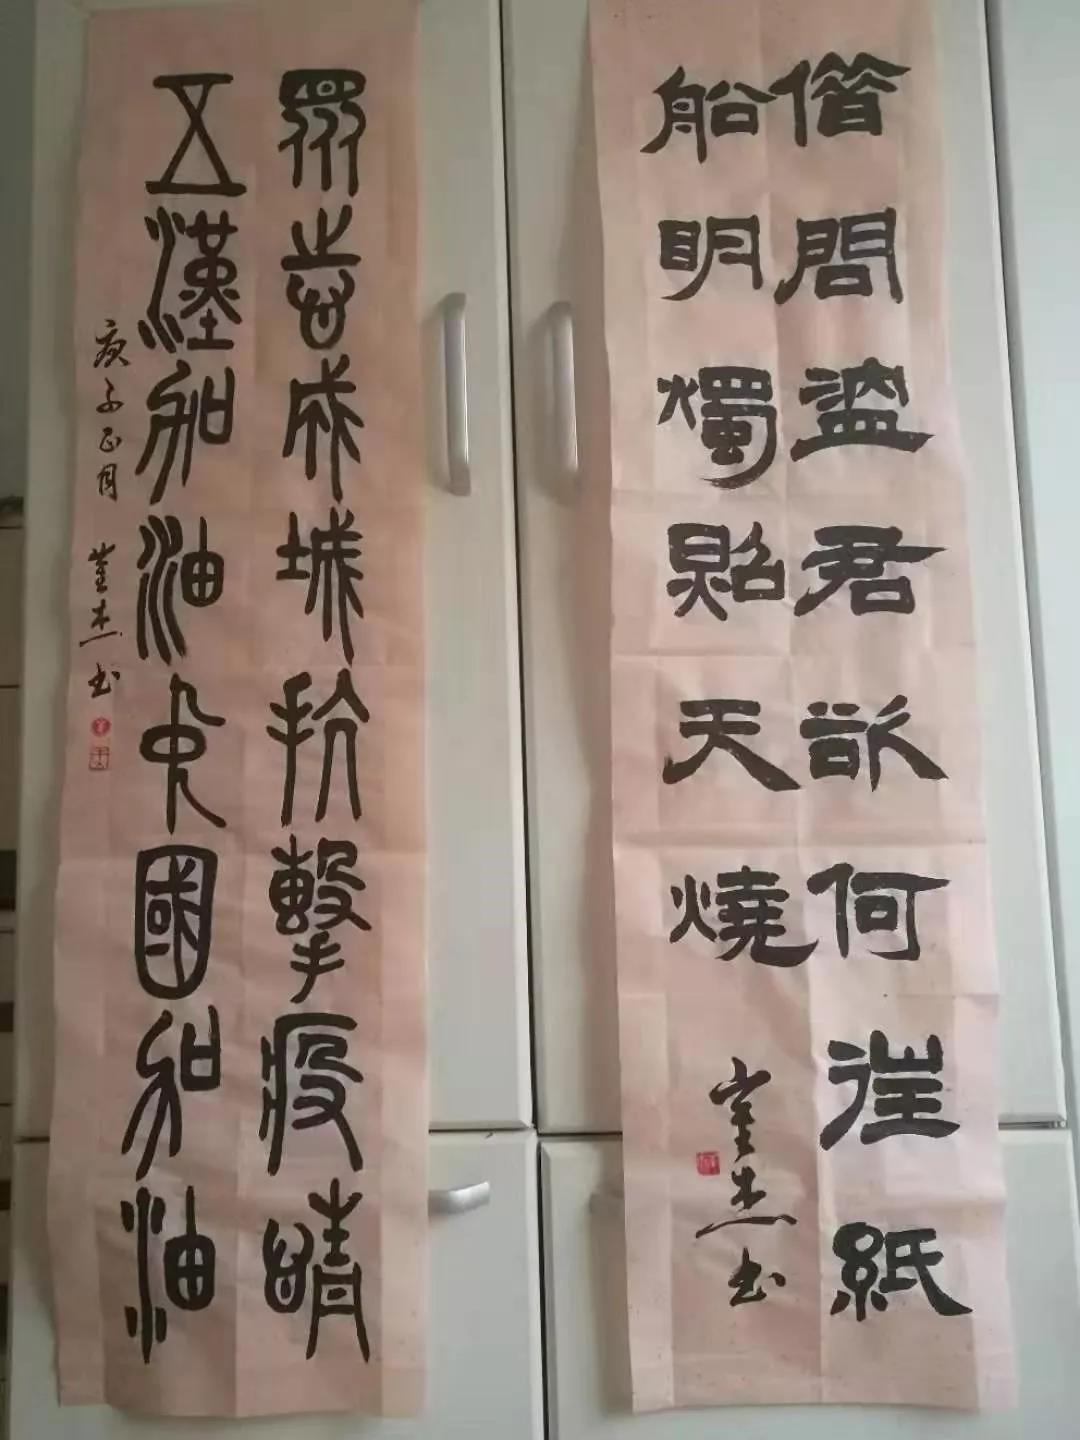 借問盗君欲何往紙
船明燭照天燒
董杰书
眾志成城抗擊疫晴
五漢加油中國加油
庚子正月 董杰书